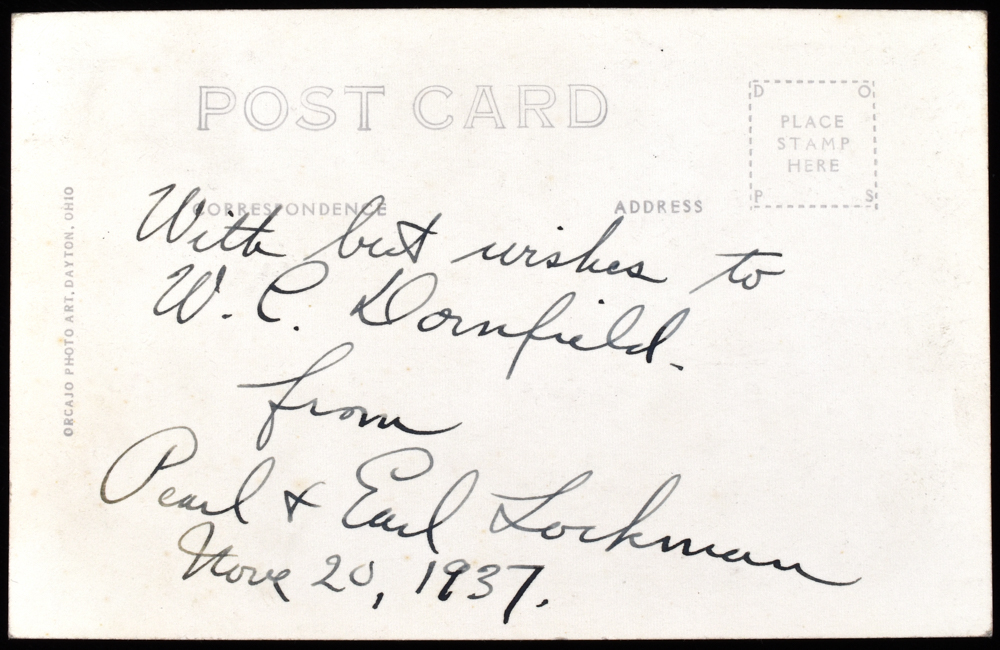 POST CARD
D O
PLACE
STAMP
HERE
P S
CORRESPONDENCE
ADDRESS
ORCAJO PHOTO ART, DAYTON, OHIO
With best wishes to
W. C. Dornfield.
from
Pearl & Earl Lockman
Nov. 20, 1937.